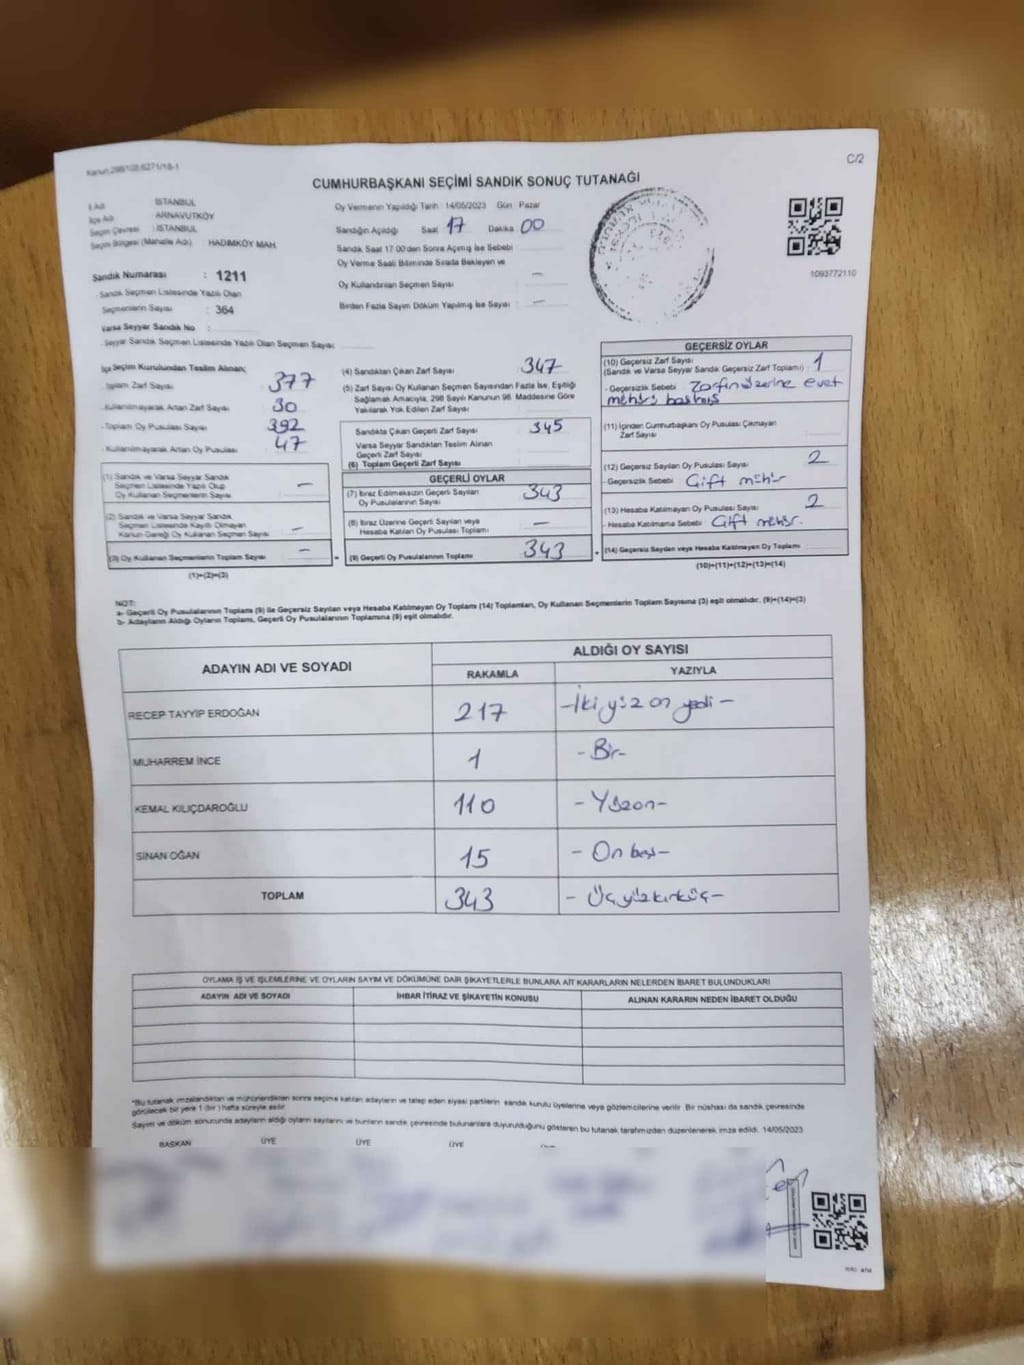 Kanun 298/105,6271/18-1
C/2
CUMHURBAŞKANI SEÇİMİ SANDIK SONUÇ TUTANAĞI
İl Adı : İSTANBUL
İlçe Adı : ARNAVUTKÖY
Seçim Çevresi : İSTANBUL
Seçim Bölgesi (Mahalle Adı) : HADIMKÖY MAH.
Sandık Numarası : 1211
Sandık Seçmen Listesinde Yazılı Olan
Seçmenlerin Sayısı : 364
Varsa Seyyar Sandık No :
Seyyar Sandık Seçmen Listesinde Yazılı Olan Seçmen Sayısı :
Oy Vermenin Yapıldığı Tarih : 14/05/2023 Gün : Pazar
Sandığın Açıldığı Saat 17 Dakika 00
Sandık Saat 17:00'den Sonra Açılmış İse Sebebi :
Oy Verme Saati Bitiminde Sırada Bekleyen ve
Oy Kullandırılan Seçmen Sayısı : —
Birden Fazla Sayım Döküm Yapılmış İse Sayısı : —
1093772110
İlçe Seçim Kurulundan Teslim Alınan;
- Toplam Zarf Sayısı : 377
- Kullanılmayarak Artan Zarf Sayısı : 30
- Toplam Oy Pusulası Sayısı : 392
- Kullanılmayarak Artan Oy Pusulası : 47
(1) Sandık ve Varsa Seyyar Sandık
Seçmen Listesinde Yazılı Olup
Oy Kullanan Seçmenlerin Sayısı : —
(2) Sandık ve Varsa Seyyar Sandık
Seçmen Listesinde Kayıtlı Olmayan
Kanun Gereği Oy Kullanan Seçmen Sayısı : —
(3) Oy Kullanan Seçmenlerin Toplam Sayısı : —
(1)+(2)=(3)
(4) Sandıktan Çıkan Zarf Sayısı : 347
(5) Zarf Sayısı Oy Kullanan Seçmen Sayısından Fazla İse, Eşitliği
Sağlamak Amacıyla, 298 Sayılı Kanunun 98. Maddesine Göre
Yakılarak Yok Edilen Zarf Sayısı :
Sandıkta Çıkan Geçerli Zarf Sayısı : 345
Varsa Seyyar Sandıktan Teslim Alınan
Geçerli Zarf Sayısı :
(6) Toplam Geçerli Zarf Sayısı :
GEÇERLİ OYLAR
(7) İtiraz Edilmeksizin Geçerli Sayılan
Oy Pusulalarının Sayısı : 343
(8) İtiraz Üzerine Geçerli Sayılan veya
Hesaba Katılan Oy Pusulası Toplamı : —
(9) Geçerli Oy Pusulalarının Toplamı : 343
GEÇERSİZ OYLAR
(10) Geçersiz Zarf Sayısı
(Sandık ve Varsa Seyyar Sandık Geçersiz Zarf Toplamı) : 1
- Geçersizlik Sebebi : Zarfın üzerine evet
mührü basılmış
(11) İçinden Cumhurbaşkanı Oy Pusulası Çıkmayan
Zarf Sayısı :
(12) Geçersiz Sayılan Oy Pusulası Sayısı : 2
- Geçersizlik Sebebi : Çift mühür
(13) Hesaba Katılmayan Oy Pusulası Sayısı : 2
- Hesaba Katılmama Sebebi : Çift mühür.
(14) Geçersiz Sayılan veya Hesaba Katılmayan Oy Toplamı :
(10)+(11)+(12)+(13)=(14)
NOT:
a- Geçerli Oy Pusulalarının Toplamı (9) ile Geçersiz Sayılan veya Hesaba Katılmayan Oy Toplamı (14) Toplamları, Oy Kullanan Seçmenlerin Toplam Sayısına (3) eşit olmalıdır. (9)+(14)=(3)
b- Adayların Aldığı Oyların Toplamı, Geçerli Oy Pusulalarının Toplamına (9) eşit olmalıdır.
ADAYIN ADI VE SOYADI ALDIĞI OY SAYISI
RAKAMLA YAZIYLA
RECEP TAYYİP ERDOĞAN 217 - İki yüz on yedi -
MUHARREM İNCE 1 - Bir -
KEMAL KILIÇDAROĞLU 110 - Yüzon -
SİNAN OĞAN 15 - On beş -
TOPLAM 343 - Üçyüzkırküç -
OYLAMA İŞ VE İŞLEMLERİNE VE OYLARIN SAYIM VE DÖKÜMÜNE DAİR ŞİKAYETLERLE BUNLARA AİT KARARLARIN NELERDEN İBARET BULUNDUKLARI
ADAYIN ADI VE SOYADI İHBAR İTİRAZ VE ŞİKAYETİN KONUSU ALINAN KARARIN NEDEN İBARET OLDUĞU
*Bu tutanak imzalandıktan ve mühürlendikten sonra seçime katılan adayların ve talep eden siyasi partilerin sandık kurulu üyelerine veya gözlemcilerine verilir. Bir nüshası da sandık çevresinde
görülecek bir yere 1 (bir) hafta süreyle asılır.
Sayım ve döküm sonucunda adayların aldığı oyların sayılarını ve bunların sandık çevresinde bulunanlara duyurulduğunu gösteren bu tutanak tarafımızdan düzenlenerek imza edildi. 14/05/2023
BAŞKAN ÜYE ÜYE ÜYE